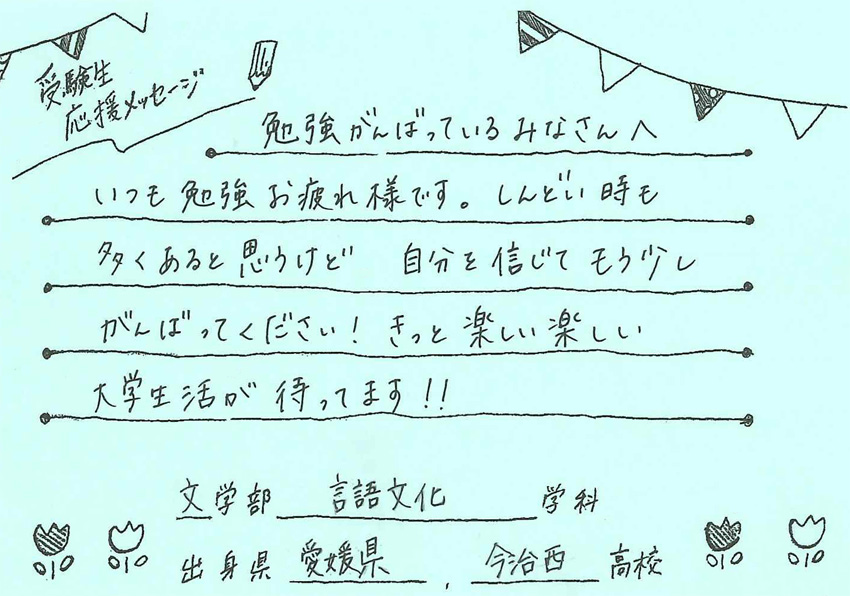 受験生
応援メッセージ
勉強がんばっているみなさんへ
いつも勉強お疲れ様です。しんどい時も
多くあると思うけど 自分を信じてもう少し
がんばってください！きっと楽しい楽しい
大学生活が待ってます!!
文学部 言語文化 学科
出身県 愛媛県 , 今治西 高校